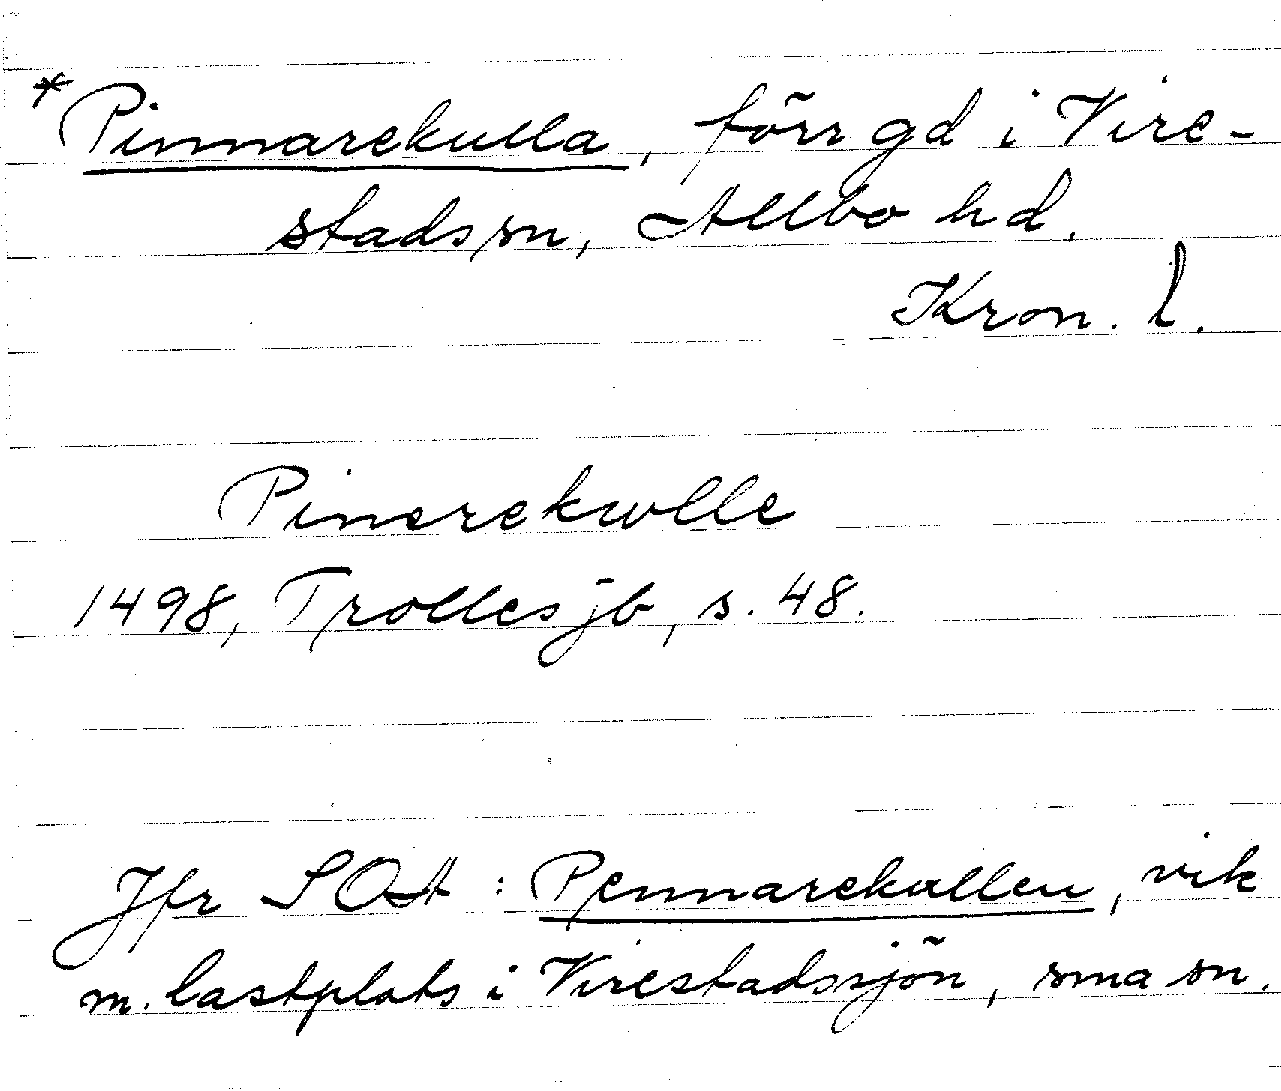 *Pinnarekulla, förr gd i Vire-
stads sn, Allbo hd.
Kron. l.
Pinerekulle
1498, Trolles jb, s. 48.
Jfr SOA: Pennarekullen, vik
m. lastplats i Virestadssjön, sma sn.